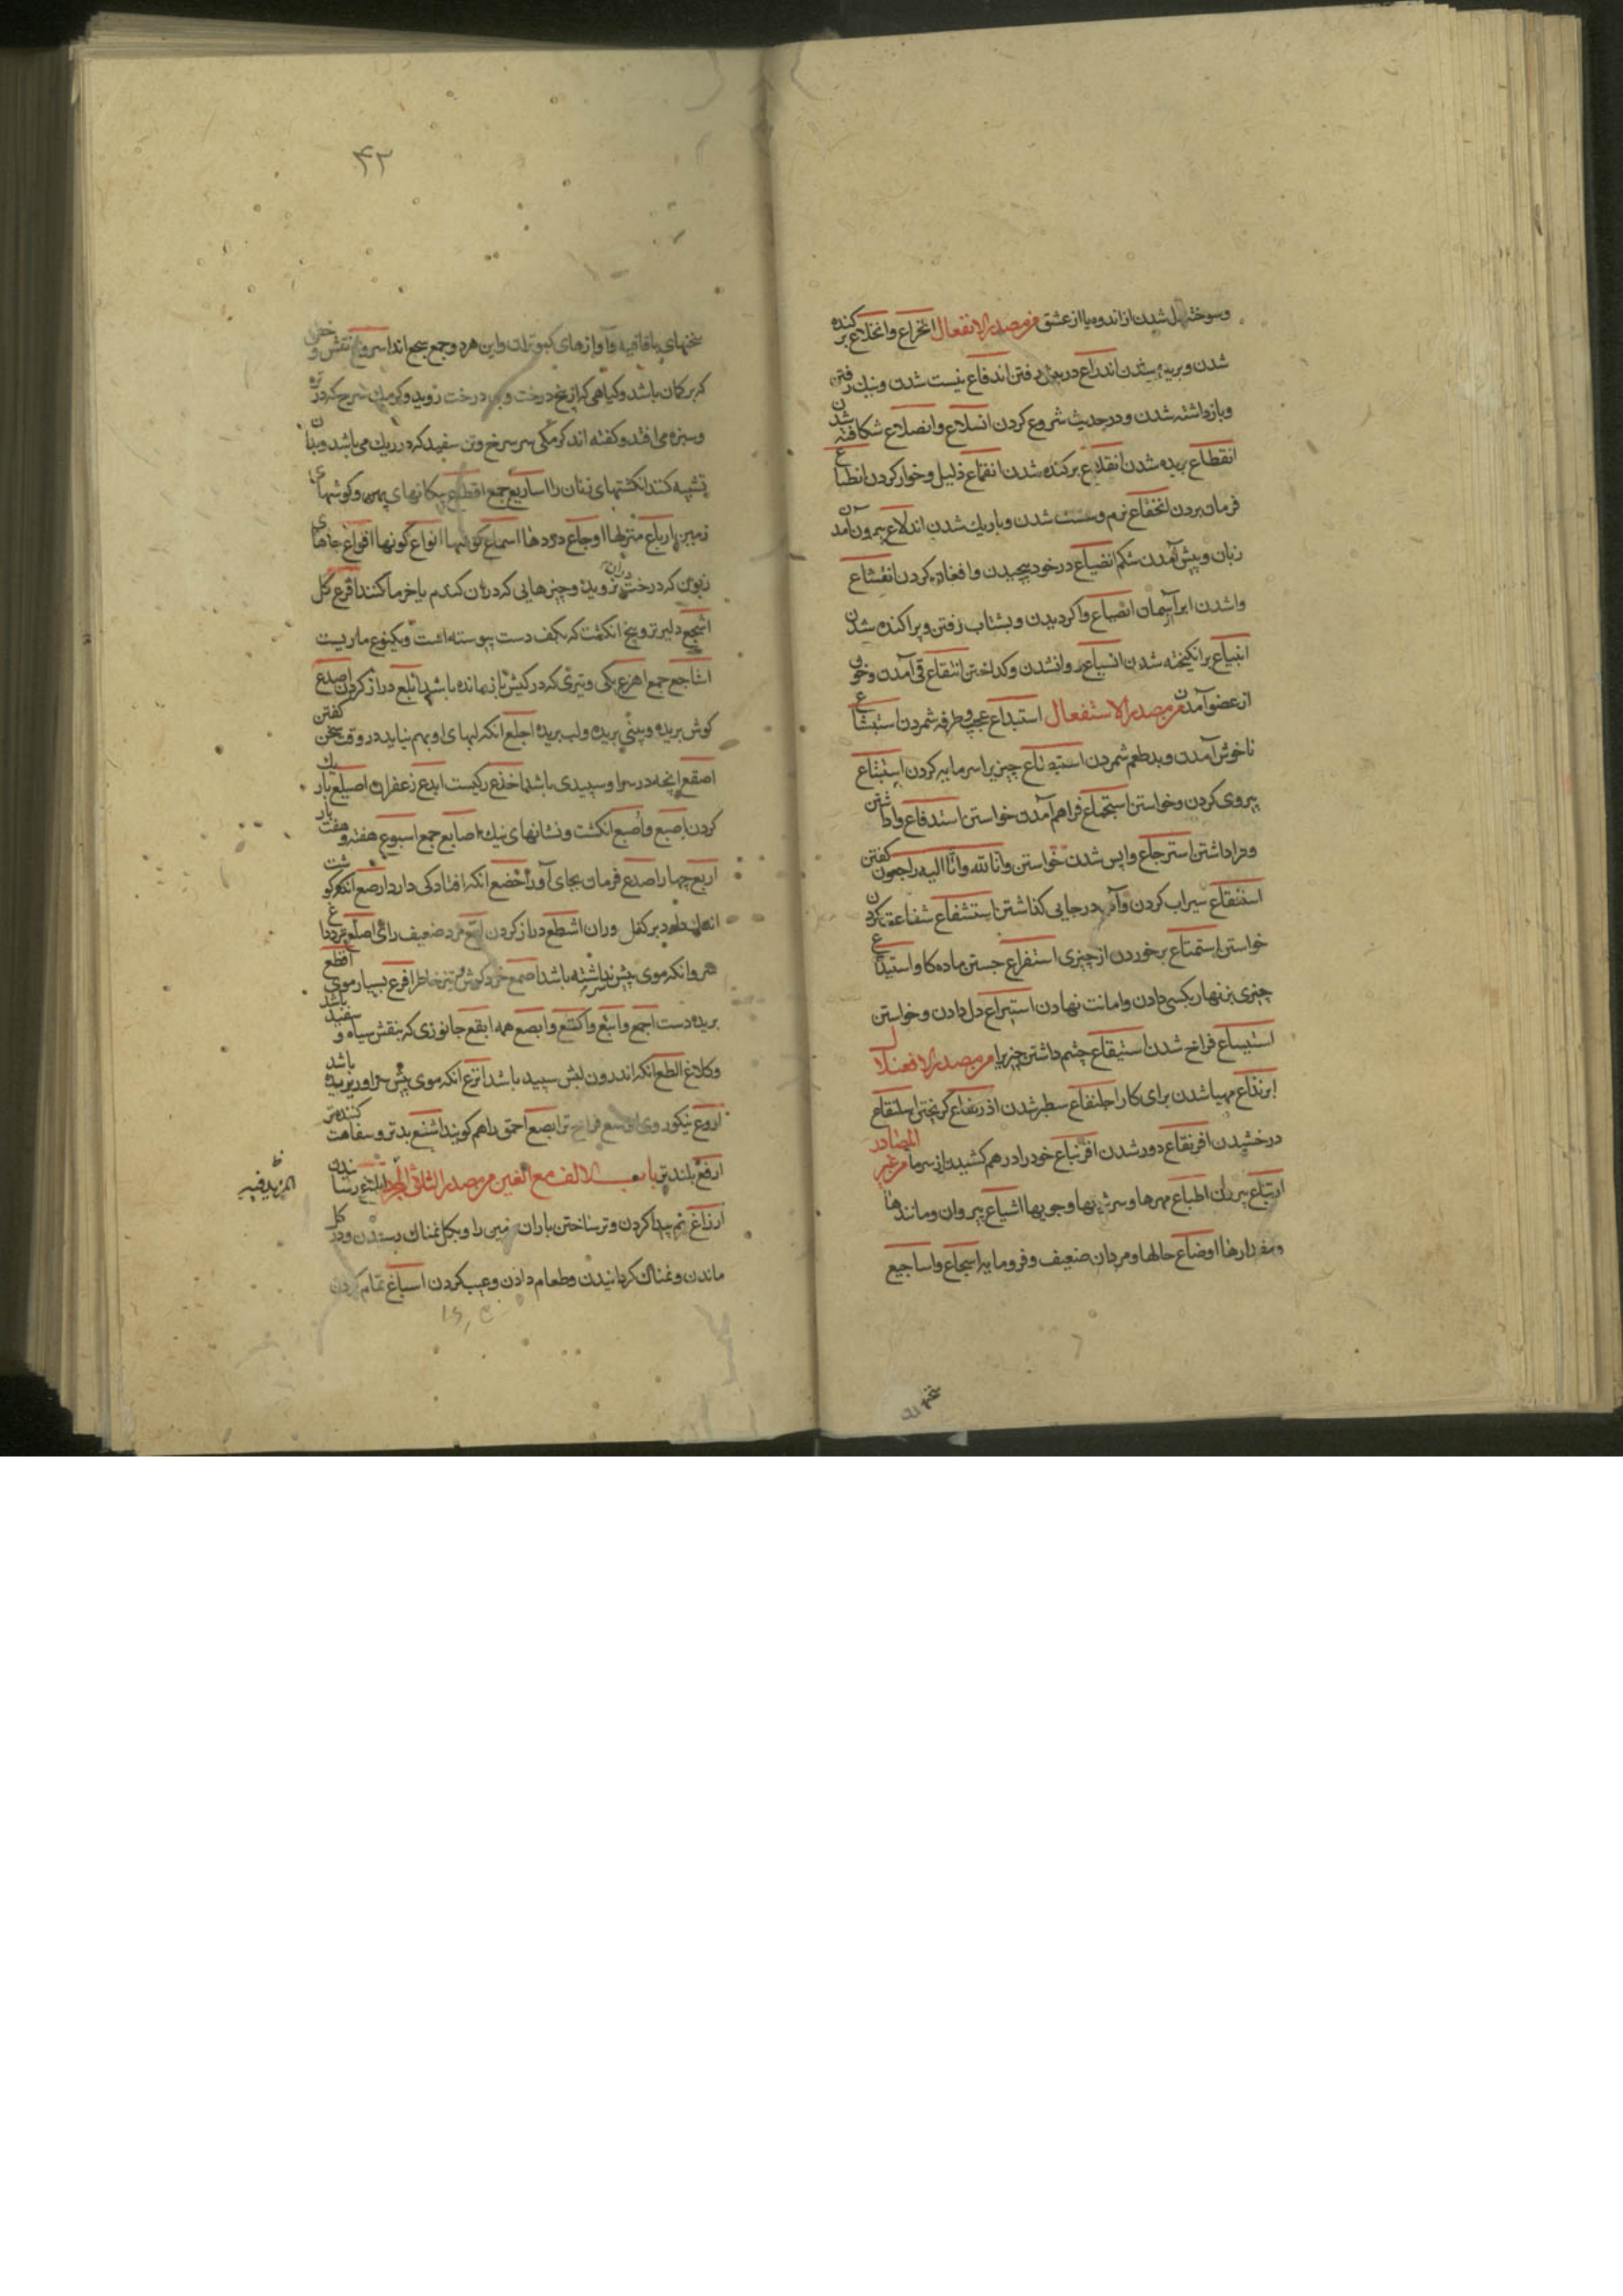 وسوخته دل شدن از اندوه یا از عشق من مصدر الانفعال انخراع وانخلاع برکنده
شدن وبریده شدن اندراع در پیش رفتن اندفاع نیست شدن ونیک رفتن
وبازداشته شدن ودر حدیث شروع کردن انسلاع وانصلاع شکافته شدن
انقطاع بریده شدن انقلاع برکنده شدن انقماع ذلیل وخوار کردن انطباع
فرمان بردن انخفاع نرم وسست شدن وباریک شدن اندلاع بیرون آمدن
زبان وپیش آمدن شکم انضیاع در خود پیچیدن وافغان کردن انقشاع
واشدن ابر از آسمان انصیاع واگردیدن وبشتاب رفتن وپراکنده شدن
انبیاع برانگیخته شدن انسیاع روانشدن وگداختن انتقاع قی آمدن وخون
از عضو آمدن من مصدر الاستفعال استبداع عجب وطرفه شمردن استبشاع
ناخوش آمدن وبدطعم شمردن استبضاع چیزیرا سرمایه کردن استتباع
پیروی کردن وخواستن استجماع فراهم آمدن خواستن استدفاع واداشتن
وفراداشتن استرجاع واپس شدن خواستن وانا لله وانا الیه راجعون گفتن
استنقاع سیراب کردن وآب در جایی گذاشتن استشفاع شفاعت کردن
خواستن استمتاع برخوردن از چیزی استفراع جستن ماده گاو استیداع
چیزی بزنهار بکسی دادن وامانت نهادن استبراع دل دادن وخواستن
استیساع فراخ شدن استیقاع چشم داشتن چیزیرا من مصدر الافعنلال
ابرنذاع مهیا شدن برای کار اجلنفاع سطبر شدن اذرنفاع گریختن اسلنقاع
درخشیدن افرنقاع دور شدن اقرنباع خود را درهم کشیدن از سرما من غیر المصادر
اتباع پیروان اطباع مهرها وسرشتها وجویها اشیاع پیروان ومانندها
ومقدارها اوضاع حالها ومردان ضعیف وفرومایه اسجاع واساجیع
سخنهای
۴۲
سخنهای باقافیه وآوازهای کبوتران واین هردو جمع سجع اند اسروع نقش وخطی
که بر کمان باشد وگیاهی که از بیخ درخت وبن درخت روید وکرمک سرخ که در تره
وسبزه می افتد وگفته اند کرمکی سر سرخ وتن سفید که در ریگ می باشد وبدان
تشبیه کنند انگشتهای زنان را اساریع جمع اقطاع پیکانهای پهن وگوشهای
زمین ارباع منزلها اوجاع دردها اسماع گوشها انواع گونها اقواع جاهای
زبون که درخت در آن نروید وچیزهایی که در آن گندم یا خرما کنند اقرع کل
اشجع دلیرتر وبیخ انگشت که بکف دست پیوسته است ویکنوع ماریست
اشاجع جمع اهزع یکی وتیری که در کیش بازمانده باشد اتلع دراز گردن اصلع
گوش بریده وبینی بریده ولب بریده اجلع آنکه لبهای او بهم نیاید در وقت سخن گفتن
اصقع آنچه در سر او سپیدی باشد اخذع رگیست ایدع زعفران اصیلع باریک
گردن اصبع واصبع انگشت ونشانهای نیک اصابع جمع اسبوع هفته وهفت بار
اربع چهار اصدع فرمان بجای آور اخضع آنکه افتادگی دارد ارصع آنکه گوشت
اندک دارد بر کفل وران اشطع دراز گردن مرد ضعیف رای اصلع
هر وانکه موی پیش سر نداشته باشد اصمع خرد گوش وتیز خاطر افرع بسیار موی اقطع
بریده دست اجمع وابتع واکتع وابصع همه ابقع جانوری که بنقش سیاه وسفید باشد
وکلاغ الطع آنکه اندرون لبش سپید باشد انزع آنکه موی پیش سر او ریزیده باشد
اروع نیکو روی اوسع فراخ تر ابصع احمق را هم گویند اشنع بدتر وسفاهت کننده تر
ارفع بلندتر باب الالف مع الغین من مصدر الثلاثی المجرد ابلاغ رسانیدن
المزید فیه ظ
ارزاغ نم پیدا کردن وتر ساختن باران زمین را وبگل نمناک رسیدن ودر گل
ماندن ونمناک گردانیدن وطعام دادن وعیب کردن اسباغ تمام کردن